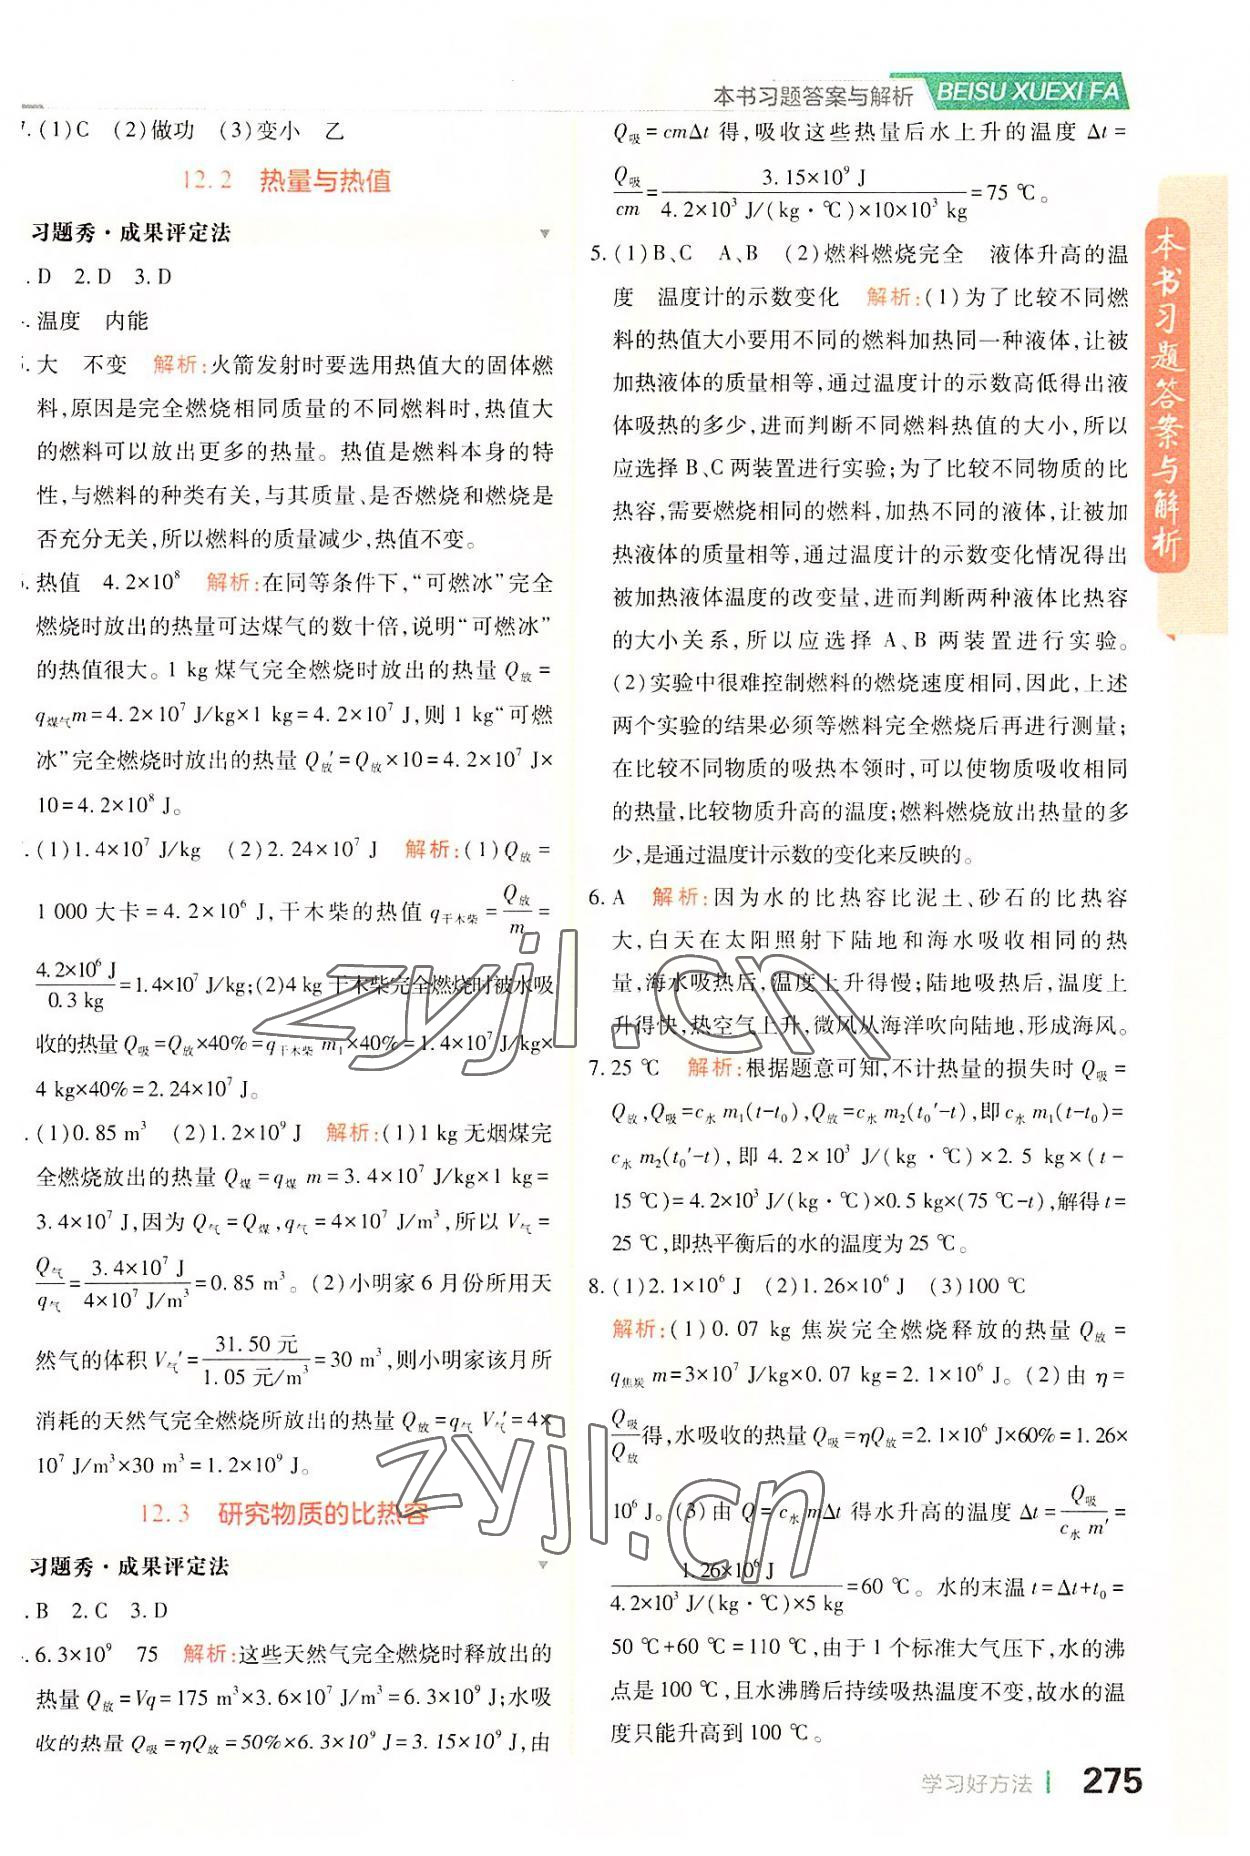 本书习题答案与解析 BEISU XUEXI FA
7. (1)C (2)做功 (3)变小 乙
12.2 热量与热值
习题秀·成果评定法
. D 2. D 3. D
. 温度 内能
. 大 不变 解析:火箭发射时要选用热值大的固体燃
料,原因是完全燃烧相同质量的不同燃料时,热值大
的燃料可以放出更多的热量。热值是燃料本身的特
性,与燃料的种类有关,与其质量、是否燃烧和燃烧是
否充分无关,所以燃料的质量减少,热值不变。
. 热值 4.2×10⁸ 解析:在同等条件下,“可燃冰”完全
燃烧时放出的热量可达煤气的数十倍,说明“可燃冰”
的热值很大。1 kg 煤气完全燃烧时放出的热量 Q放 =
q煤气m=4.2×10⁷ J/kg×1 kg=4.2×10⁷ J,则 1 kg“可燃
冰”完全燃烧时放出的热量 Q放′=Q放×10=4.2×10⁷ J×
10=4.2×10⁸ J。
. (1)1.4×10⁷ J/kg (2)2.24×10⁷ J 解析:(1)Q放 =
1 000 大卡=4.2×10⁶ J,干木柴的热值 q干木柴 = Q放/m =
4.2×10⁶ J/0.3 kg =1.4×10⁷ J/kg;(2)4 kg 干木柴完全燃烧时被水吸
收的热量 Q吸=Q放×40%=q干木柴 m₁×40%=1.4×10⁷ J/kg×
4 kg×40%=2.24×10⁷ J。
. (1)0.85 m³ (2)1.2×10⁹ J 解析:(1)1 kg 无烟煤完
全燃烧放出的热量 Q煤=q煤 m=3.4×10⁷ J/kg×1 kg=
3.4×10⁷ J,因为 Q气=Q煤,q气=4×10⁷ J/m³,所以 V气=
Q气/q气 = 3.4×10⁷ J/4×10⁷ J/m³ =0.85 m³。(2)小明家 6 月份所用天
然气的体积 V气′= 31.50 元/1.05 元/m³ =30 m³,则小明家该月所
消耗的天然气完全燃烧所放出的热量 Q放=q气 V气′=4×
10⁷ J/m³×30 m³=1.2×10⁹ J。
12.3 研究物质的比热容
习题秀·成果评定法
. B 2. C 3. D
. 6.3×10⁹ 75 解析:这些天然气完全燃烧时释放出的
热量 Q放=Vq=175 m³×3.6×10⁷ J/m³=6.3×10⁹ J;水吸
收的热量 Q吸=ηQ放=50%×6.3×10⁹ J=3.15×10⁹ J,由
Q吸=cmΔt 得,吸收这些热量后水上升的温度 Δt=
Q吸/cm = 3.15×10⁹ J/4.2×10³ J/(kg·℃)×10×10³ kg =75 ℃。
5. (1)B、C A、B (2)燃料燃烧完全 液体升高的温
度 温度计的示数变化 解析:(1)为了比较不同燃
料的热值大小要用不同的燃料加热同一种液体,让被
加热液体的质量相等,通过温度计的示数高低得出液
体吸热的多少,进而判断不同燃料热值的大小,所以
应选择 B、C 两装置进行实验;为了比较不同物质的比
热容,需要燃烧相同的燃料,加热不同的液体,让被加
热液体的质量相等,通过温度计的示数变化情况得出
被加热液体温度的改变量,进而判断两种液体比热容
的大小关系,所以应选择 A、B 两装置进行实验。
(2)实验中很难控制燃料的燃烧速度相同,因此,上述
两个实验的结果必须等燃料完全燃烧后再进行测量;
在比较不同物质的吸热本领时,可以使物质吸收相同
的热量,比较物质升高的温度;燃料燃烧放出热量的多
少,是通过温度计示数的变化来反映的。
6. A 解析:因为水的比热容比泥土、砂石的比热容
大,白天在太阳照射下陆地和海水吸收相同的热
量,海水吸热后,温度上升得慢;陆地吸热后,温度上
升得快,热空气上升,微风从海洋吹向陆地,形成海风。
7. 25 ℃ 解析:根据题意可知,不计热量的损失时 Q吸=
Q放,Q吸=c水 m₁(t-t₀),Q放=c水 m₂(t₀′-t),即c水 m₁(t-t₀)=
c水 m₂(t₀′-t),即 4.2×10³ J/(kg·℃)×2.5 kg×(t-
15 ℃)=4.2×10³ J/(kg·℃)×0.5 kg×(75 ℃-t),解得 t=
25 ℃,即热平衡后的水的温度为 25 ℃。
8. (1)2.1×10⁶ J (2)1.26×10⁶ J (3)100 ℃
解析:(1)0.07 kg 焦炭完全燃烧释放的热量 Q放=
q焦炭 m=3×10⁷ J/kg×0.07 kg=2.1×10⁶ J。(2)由 η=
Q吸/Q放 得,水吸收的热量 Q吸=ηQ放=2.1×10⁶ J×60%=1.26×
10⁶ J。(3)由 Q=c水 mΔt 得水升高的温度 Δt= Q吸/c水 m′ =
1.26×10⁶ J/4.2×10³ J/(kg·℃)×5 kg =60 ℃。水的末温 t=Δt+t₀=
50 ℃+60 ℃=110 ℃,由于 1 个标准大气压下,水的沸
点是 100 ℃,且水沸腾后持续吸热温度不变,故水的温
度只能升高到 100 ℃。
本书习题答案与解析
zyjl.cn
zyjl.cn
学习好方法 275